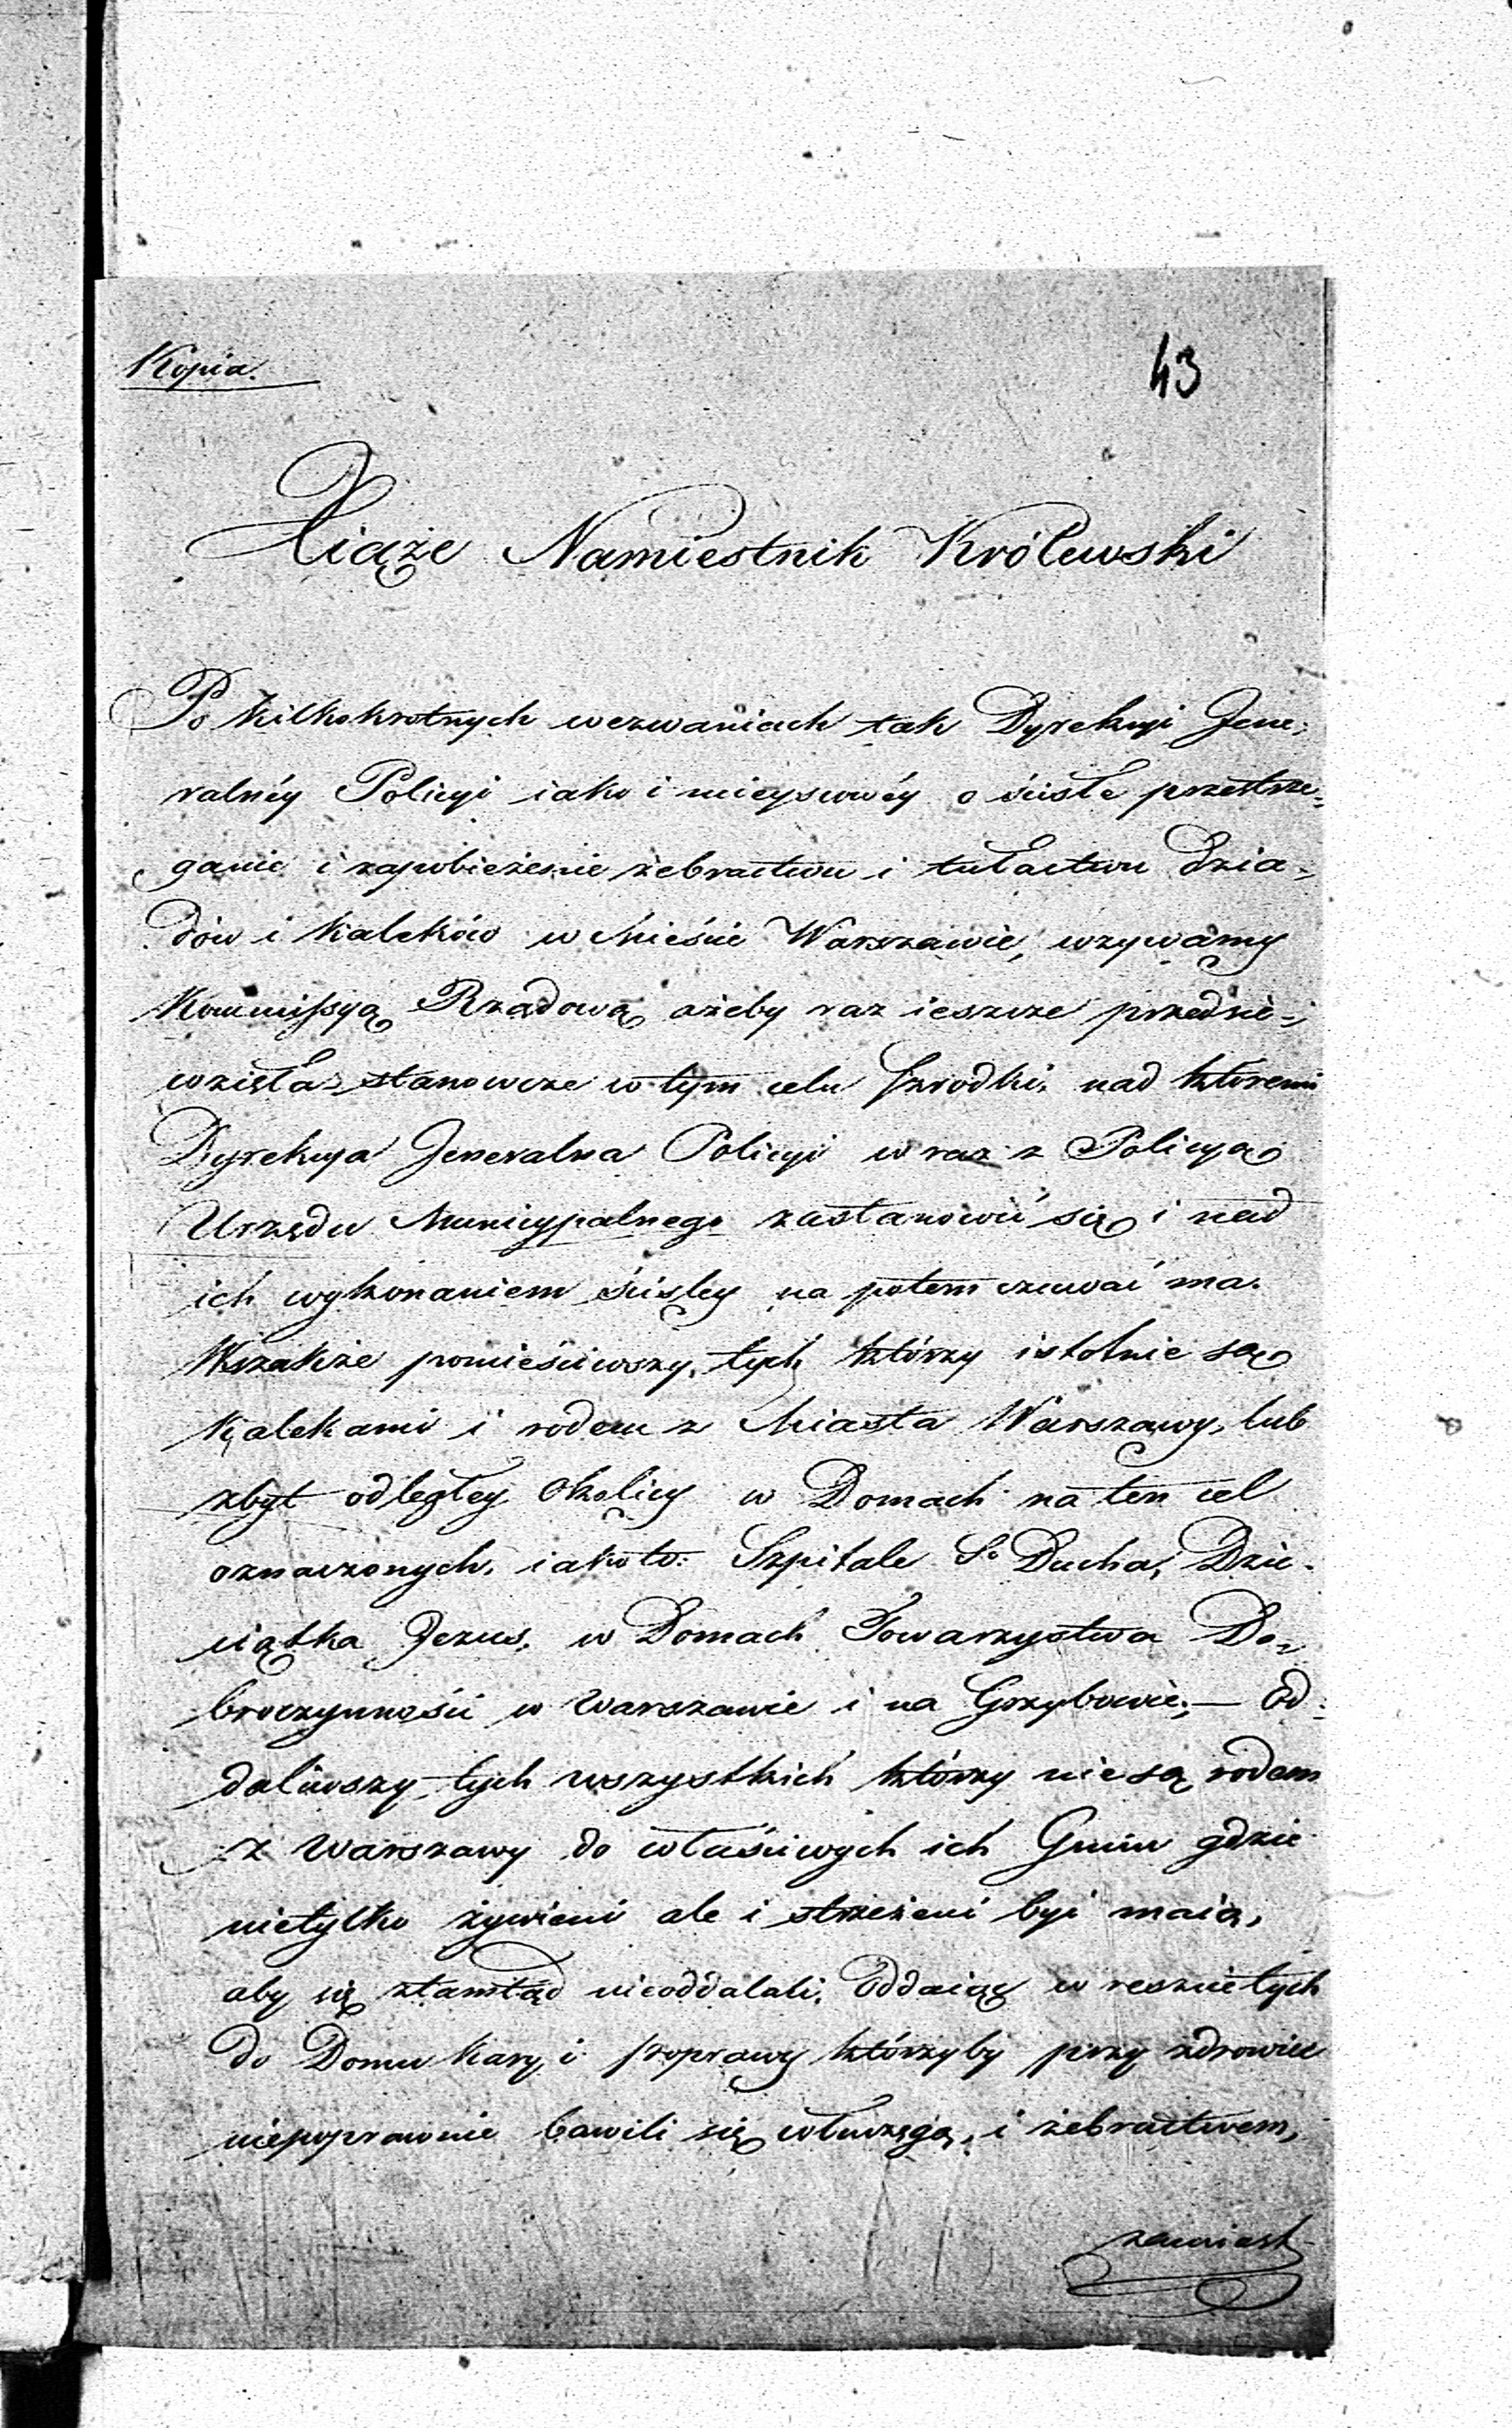 Kopia.
43
Xiąże Namiestnik Królewski
Po kilkokrotnych wezwaniach tak Dyrekcyi Jene-
ralnéy Policyi iako i mieyscowéy o ścisłe przestrze=
ganie i zapobieżenie żebractwu i tułactwu dzia-
dów i kaleków w Mieście Warszawie, wzywamy
Kommissyą Rządową ażeby raz ieszcze przedsię-
wzięła stanowcze w tym celu szrodki, nad któremi
Dyrekcya Jeneralna Policyi wraz z Policyą
Urzędu Municypalnego zastanowić się i nad
ich wykonaniem ścisley na potem czuwać ma.
Wszakże pomieściwszy tych którzy istotnie są
kalekami i rodem z Miasta Warszawy, lub
zbyt odległey okolicy w Domach na ten cel
oznaczonych, iako to: Szpitale S. Ducha, Dzie-
ciątka Jezus, w Domach Towarzystwa Do-
broczynności w Warszawie i na Grzybowie; — Od-
daliwszy tych wszystkich którzy nie są rodem
z Warszawy do właściwych ich Gmin gdzie
nietylko żywieni ale i strzeżeni być maią,
aby się ztamtąd nieoddalali, Oddaiąc w reszcie tych
do Domu kary i poprawy którzyby przy zdrowiu
niepoprawnie bawili się włuczęgą, i żebractwem,
zamiast